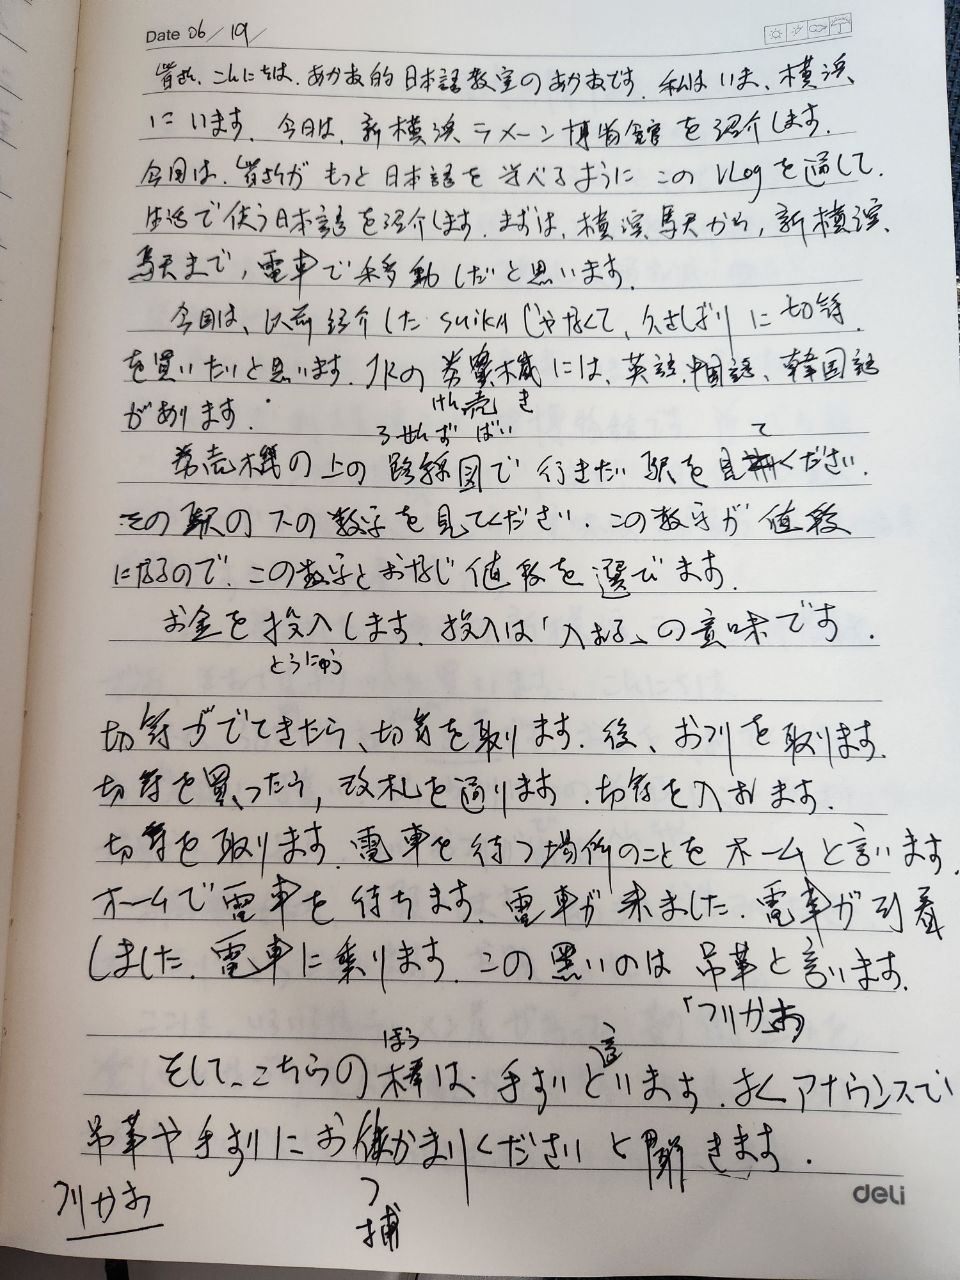 Date 06/19/
皆さん、こんにちは、あかね的日本語教室のあかねです。私はいま、横浜、
にいます。今日は、新横浜ラメーン博物館を紹介します。
今回は、皆さんが もっと日本語を学べるように この vlogを通して、
生活で使う日本語を紹介します。まずは、横浜駅から、新横浜、
駅まで、電車で移動しだと思います。
今回は、以前紹介した suika じゃなくて、久さしぶりに切符、
を買いたいと思います。JRの 券賣機には、英語、中国語、韓国語
があります。
けん売 き
ろせんず ばい
券売機の上の路線図で行きたい駅を見てください。
その駅の下の数字を見てください。この数字が値段
になるので、この数字とおなじ値段を選びます。
お金を投入します。投入は「入れる」の意味です。
とうにゅう
切符がでてきたら、切符を取ります。後、おつりを取ります。
切符を買ったら、改札を通ります。切符を入れます。
切符を取ります。電車を待つ場所のことをホームと言います。
ホームで電車を待ちます。電車が来ました。電車が到着
しました。電車に乗ります。この黒いのは吊革と言います。
「つりかわ
ぼう
そして、こちらの棒は、手すりと言います。よくアナウンスで、
吊革や手すりにおかまりくださいと聞きます。
つりかわ
つ
捕
deli